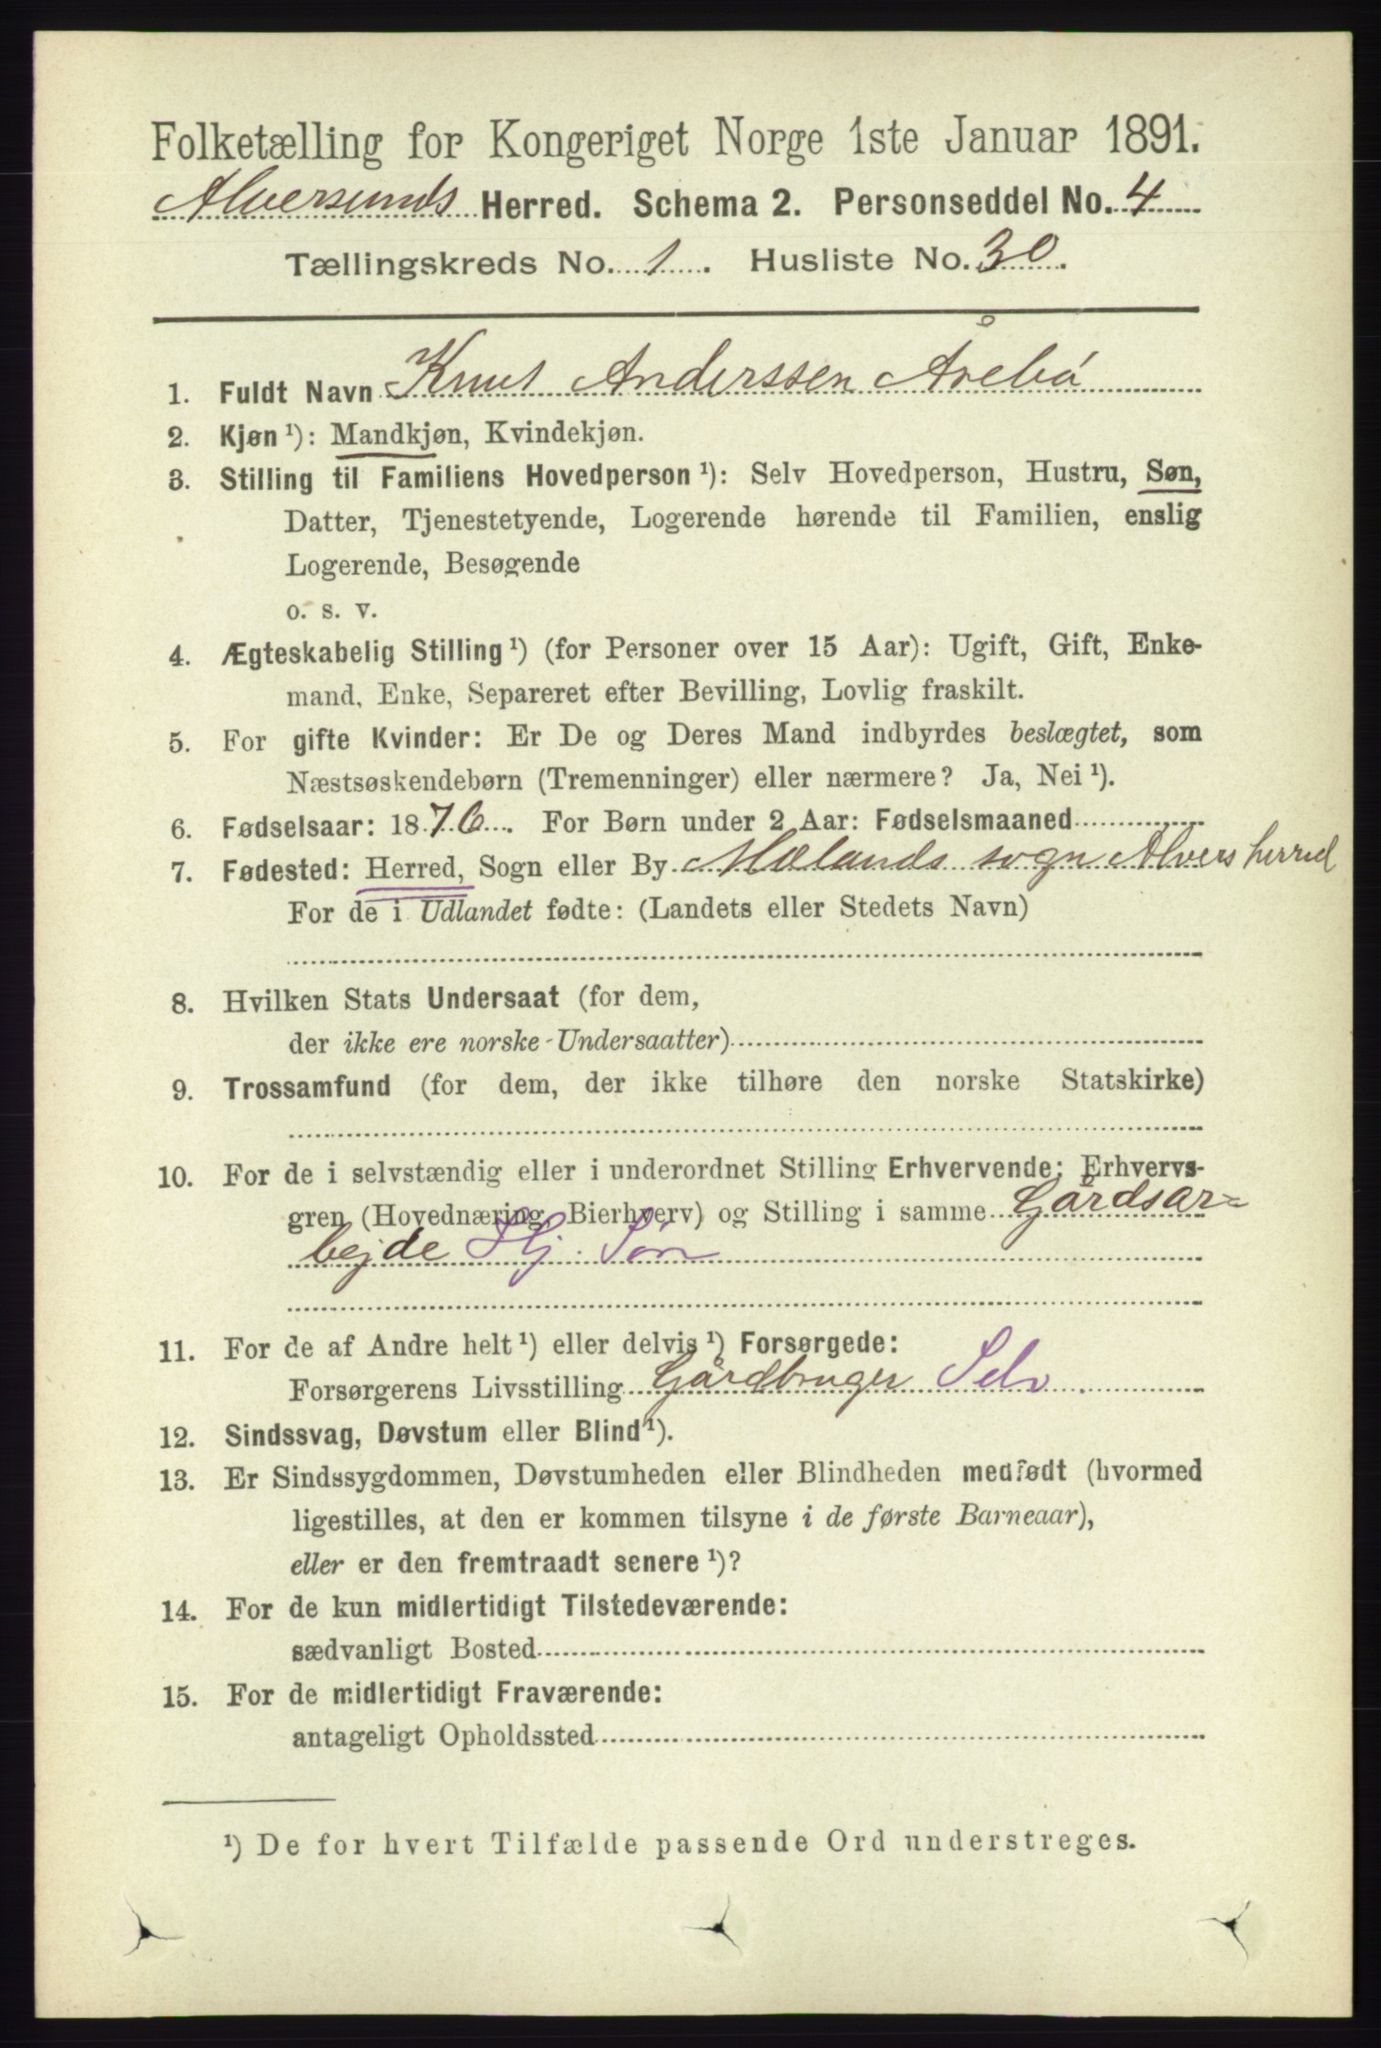 Folketælling for Kongeriget Norge 1ste Januar 1891.
Alversunds Herred. Schema 2. Personseddel No. 4
Tællingskreds No. 1. Husliste No. 30.
1. Fuldt Navn Knut Anderssen Årebø
2. Kjøn ¹): Mandkjøn, Kvindekjøn.
3. Stilling til Familiens Hovedperson ¹): Selv Hovedperson, Hustru, Søn,
Datter, Tjenestetyende, Logerende hørende til Familien, enslig
Logerende, Besøgende
o. s. v.
4. Ægteskabelig Stilling ¹) (for Personer over 15 Aar): Ugift, Gift, Enke-
mand, Enke, Separeret efter Bevilling, Lovlig fraskilt.
5. For gifte Kvinder: Er De og Deres Mand indbyrdes beslægtet, som
Næstsøskendebørn (Tremenninger) eller nærmere? Ja, Nei ¹).
6. Fødselsaar: 1876. For Børn under 2 Aar: Fødselsmaaned
7. Fødested: Herred, Sogn eller By Mælands sogn Alvers herred
For de i Udlandet fødte: (Landets eller Stedets Navn)
8. Hvilken Stats Undersaat (for dem,
der ikke ere norske Undersaatter)
9. Trossamfund (for dem, der ikke tilhøre den norske Statskirke)
10. For de i selvstændig eller i underordnet Stilling Erhvervende: Erhvervs-
gren (Hovednæring, Bierhverv) og Stilling i samme Gårdsar=
bejde Hj. Søn
11. For de af Andre helt ¹) eller delvis ¹) Forsørgede:
Forsørgerens Livsstilling Gårdbruger Selv.
12. Sindssvag, Døvstum eller Blind ¹).
13. Er Sindssygdommen, Døvstumheden eller Blindheden medfødt (hvormed
ligestilles, at den er kommen tilsyne i de første Barneaar),
eller er den fremtraadt senere ¹)?
14. For de kun midlertidigt Tilstedeværende:
sædvanligt Bosted
15. For de midlertidigt Fraværende:
antageligt Opholdssted
¹) De for hvert Tilfælde passende Ord understreges.